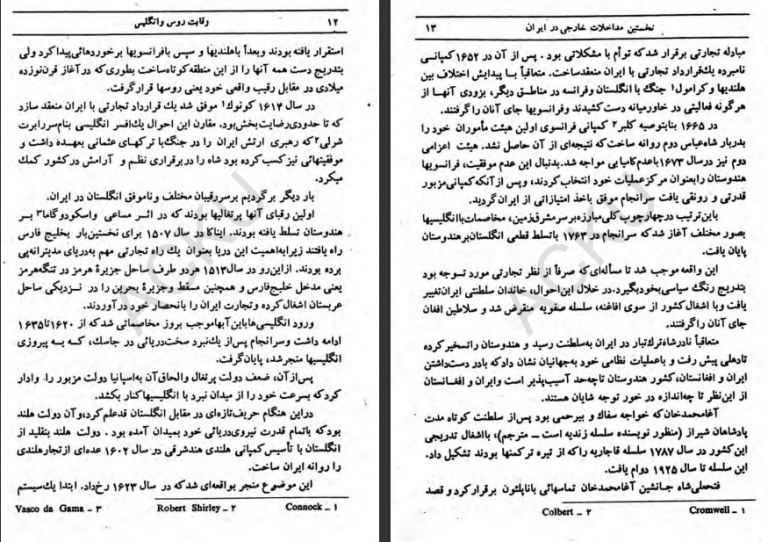 ۱۲ رقابت روس و انگلیس
استقرار یافته بودند وبعداً باهلندیها و سپس بافرانسویها برخوردهائی‌پیدا کرد ولی
بتدریج دست همه آنها را از این منطقه کوتاه ساخت بطوری‌که درآغاز قرن‌نوزده
میلادی در مقابل رقیب واقعی خود یعنی روسها قرار گرفت.
در سال ۱۶۱۳ کونوك۱ موفق شد یك قرارداد تجارتی با ایران منعقد سازد
که تا حدودی‌رضایت بخش‌بود. مقارن این احوال یك‌افسر انگلیسی بنام سررابرت
شرلی۲ که رهبری ارتش ایران را در جنگ‌با ترکهای عثمانی بعهده داشت و
موفقیتهائی نیز کسب کرده بود شاه را در برقراری نظم و آرامش در کشور کمك
میکرد.
بار دیگر برگردیم برسر رقیبان مختلف وناموفق انگلستان در ایران.
اولین رقبای آنها پرتغالیها بودند که در اثر مساعی واسکودوگاما۳ بر
هندوستان تسلط یافته بودند. اینا که در سال ۱۵۰۷ برای نخستین‌بار بخلیج فارس
راه یافتند زیرا به‌اهمیت این دریا بعنوان یك راه تجارتی مهم به‌دریای مدیترانه‌پی
برده بودند. ازاین‌رو در سال۱۵۱۳ هردو طرف ساحل جزیرهٔ هرمز در تنگه‌هرمز
یعنی مدخل خلیج‌فارس و همچنین مسقط وجزیرهٔ بحرین را در نزدیکی ساحل
عربستان اشغال‌کرده وتجارت ایران را بانحصار خود درآوردند.
ورود انگلیسی‌هاباین آبهاموجب بروز مخاصماتی شد که از ۱۶۲۰تا۱۶۳۵
ادامه داشت وسرانجام پس‌از یك‌نبرد سخت‌دریائی در جاسك، که به پیروزی
انگلیسیها منجرشد، پایان‌گرفت.
پس‌ازآن، ضعف دولت پرتغال والحاق‌آن به‌اسپانیا دولت مزبور را، وادار
کرد که بسرعت خود را از میدان نبرد با انگلیسیها کنار بکشد.
دراین هنگام حریف‌تازه‌ای در مقابل انگلستان قدعلم‌کرد وآن دولت هلند
بود که باتمام قدرت نیروی‌دریائی خود بمیدان آمده بود. دولت هلند بتقلید از
انگلستان با تأسیس کمپانی هلندی هندشرقی در سال ۱۶۰۲ عده‌ای ازتجارهلندی
را روانه ایران ساخت.
این موضوع منجر بواقعه‌ای شد که در سال ۱۶۲۳ رخ‌داد. ابتدا یك‌سیستم
Connock – ۱ Robert Shirley – ۲ Vasco da Gama – ۳
نخستین مداخلات خارجی در ایران ۱۳
مبادله تجارتی برقرار شد که توأم با مشکلاتی بود. پس از آن در ۱۶۵۲ کمپانی
نامبرده یك‌قرارداد تجارتی با ایران منعقدساخت. متعاقباً با پیدایش اختلاف بین
هلندیها و کرامول۱ جنگ با انگلستان وفرانسه در مناطق دیگر، بزودی آنهـا از
هر گونه فعالیتی در خاورمیانه دست کشیدند وفرانسویها جای آنان را گرفتند.
در ۱۶۶۵ بنابتوصیه کلبر۲ کمپانی فرانسوی اولین هیئت مأموران خود را
بدربار شاه‌عباس دوم روانه ساخت که نتیجه‌ای از آن حاصل نشد. هیئت اعزامی
دوم نیز در سال ۱۶۷۳ باعدم‌کامیابی مواجه شد. بدنبال این عدم موفقیت، فرانسویها
هندوستان را بعنوان مرکز عملیات خود انتخاب کردند، و پس از آنکه کمپانی مزبور
قدرتی و رونقی یافت سرانجام موفق باخذ امتیازاتی از ایران گردید.
باین‌ترتیب در چهارچوب کلی مبارزه برسر مشرق‌زمین، مخاصمات باانگلیسیها
بصور مختلف آغاز شد که سرانجام در ۱۷۶۳ باتسلط قطعی انگلستان برهندوستان
پایان یافت.
این واقعه موجب شد تا مسأله‌ای که صرفاً از نظر تجارتی مورد توجه بود
بتدریج رنگ سیاسی بخود بگیرد. در خلال این احوال، خاندان سلطنتی ایران‌تغییر
یافت وبا اشغال کشور از سوی افاغنه، سلسله صفویه منقرض شد و سلاطین افغان
جای آنان را گرفتند.
متعاقباً نادرشاه ترك‌تبار در ایران به‌سلطنت رسید و هندوستان را تسخیر کرده
تادهلی پیش رفت و باعملیات نظامی خود به‌جهانیان نشان داد که بادر دست‌داشتن
ایران و افغانستان، کشور هندوستان تاچه‌حد آسیب‌پذیر است وایران و افغـانستان
از این‌نظر تا چه‌اندازه در خور توجه شایان هستند.
آغامحمدخان که خواجه سفاك و بیرحمی بود پس‌از سلطنت کوتاه مدت
پادشاهان شیراز (منظور نویسنده سلسله زندیه است ـ مترجم)، بااشغال تدریجی
این کشور در سال ۱۷۸۷ سلسله قاجاریه راکه از تیره ترکمنها بودند تشکیل داد.
این سلسله تا سال ۱۹۲۵ دوام یافت.
فتحعلی‌شاه جانشین آغامحمدخان تماسهائی باناپلئون برقرار کرد و قصد
Cromwell – ۱ Colbert – ۲
ACKU
ACKU